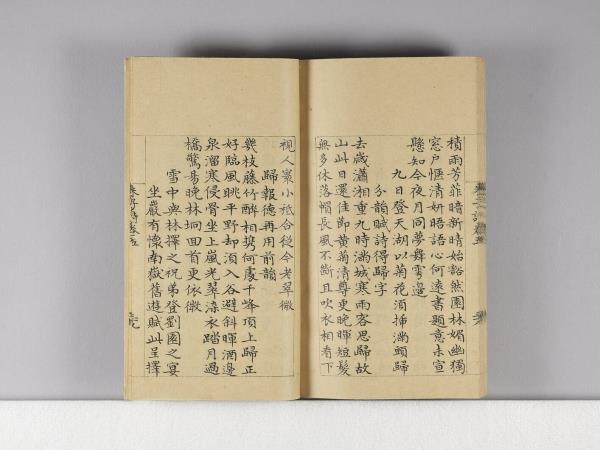 積雨芳菲暗新晴始豁然園林媚幽獨
窓戶愜清妍晤語心何遠書題意未宣
懸知今夜月同夢舞雩邊
九日登天湖以菊花須插滿頭歸
分韻賦詩得歸字
去歲瀟湘重九時滿城寒雨客思歸故
山此日還佳節黃菊清尊更晚暉短髮
無多休落帽長風不斷且吹衣相看下
視人寰小祗合從今老翠微
歸報德再用前韻
幾枝藤竹醉相携何處千峰頂上歸正
好臨風眺平野却須入谷避斜暉酒邊
泉溜寒侵骨坐上嵐光翠染衣踏月過
橋驚易晚林坰回首更依微
雪中與林擇之祝弟登劉圃之宴
坐巖有懷南嶽舊遊賦此呈擇